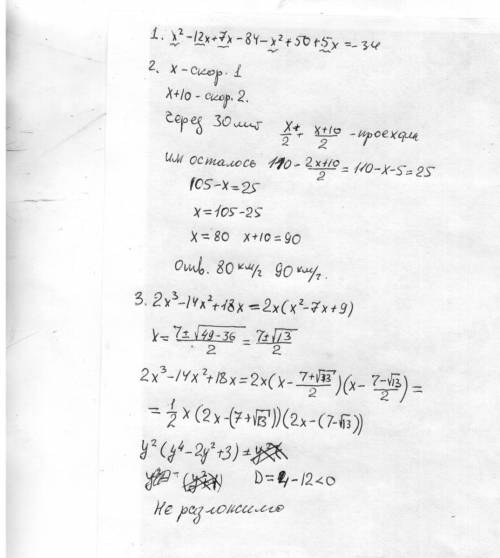 1. x² - 12x + 7x - 84 - x² + 50 + 5x = -34
2. x - скор. 1
x+10 - скор. 2.
через 30 мин x/2 + (x+10)/2 - проехали
им осталось 110 - (2x+10)/2 = 110 - x - 5 = 25
105 - x = 25
x = 105 - 25
x = 80 x+10 = 90
Отв. 80 км/ч 90 км/ч.
3. 2x³ - 14x² + 18x = 2x(x² - 7x + 9)
x = (7 ± √(49-36))/2 = (7 ± √13)/2
2x³ - 14x² + 18x = 2x(x - (7+√13)/2)(x - (7-√13)/2) =
= 1/2 x (2x - (7+√13))(2x - (7-√13))
y²(y⁴ - 2y² + 3)
D = 4 - 12 < 0
Не разложимо